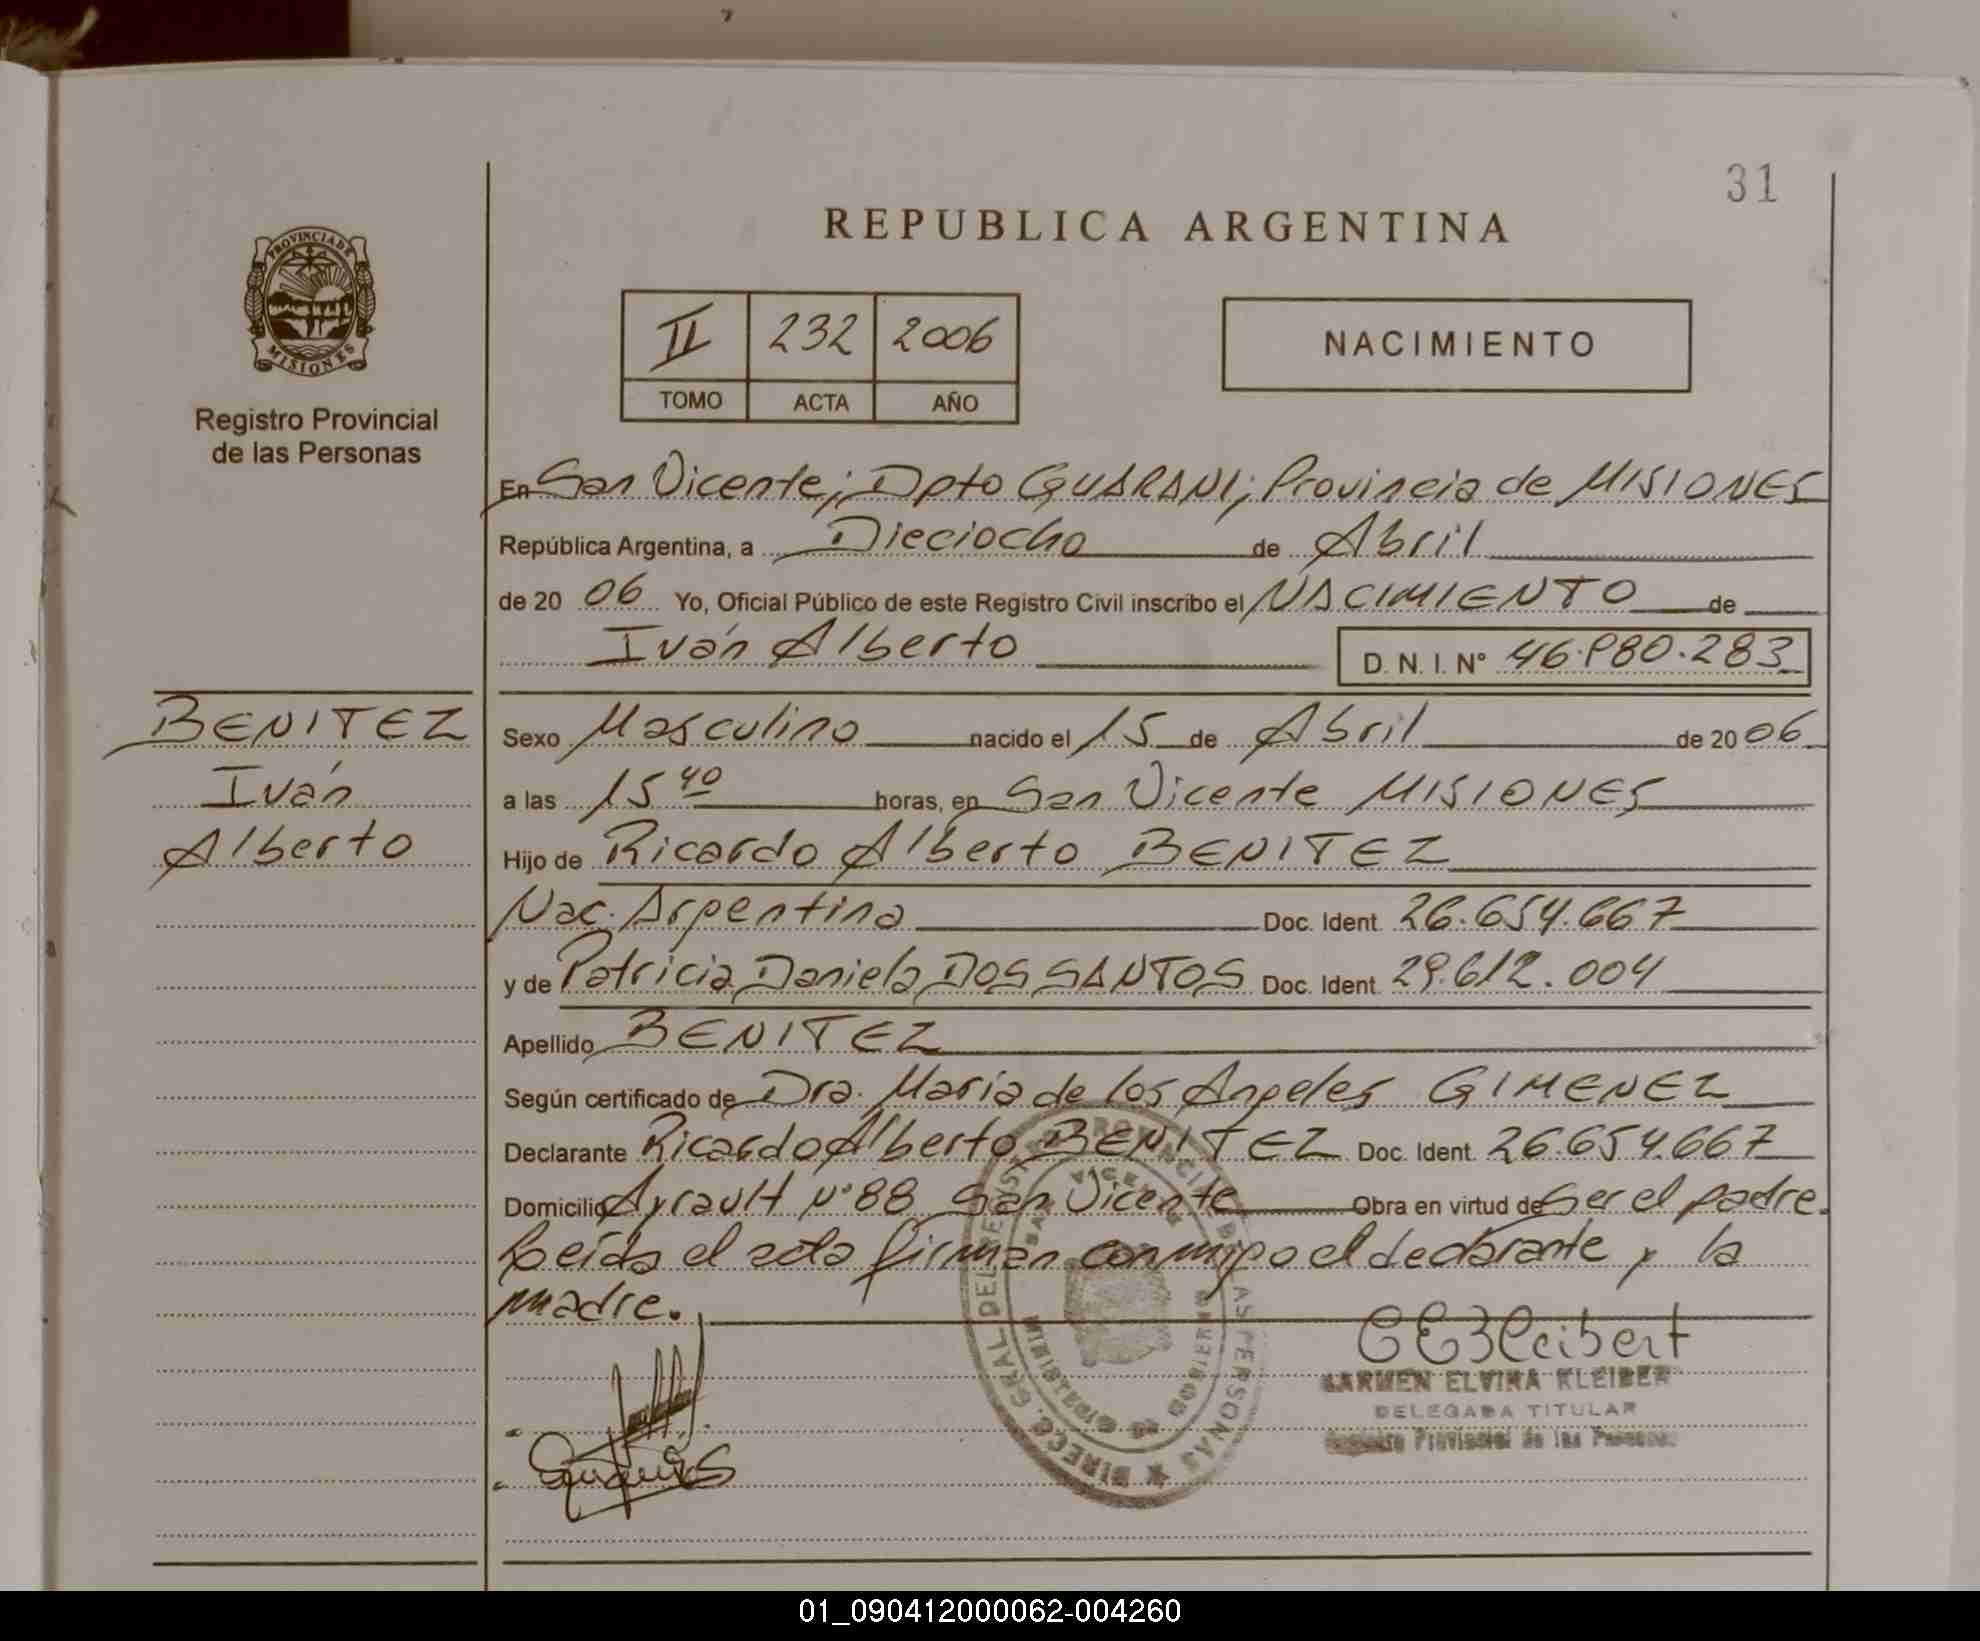 31
REPUBLICA ARGENTINA
PROVINCIA DE
MISIONES
Registro Provincial
de las Personas
II 232 2006
TOMO ACTA AÑO
NACIMIENTO
En San Vicente; Dpto GUARANI; Provincia de MISIONES
República Argentina, a Dieciocho de Abril
de 20 06 Yo, Oficial Público de este Registro Civil inscribo el NACIMIENTO de
Iván Alberto D. N. I. N°
BENITEZ
Iván
Alberto
Sexo Masculino nacido el 15 de Abril de 20 06
a las 15 40 horas, en San Vicente MISIONES
Hijo de Ricardo Alberto BENITEZ
Nac. Argentina Doc. Ident. 26.654.667
y de Patricia Daniela DOS SANTOS Doc. Ident. 29.612.004
Apellido BENITEZ
Según certificado de Dra. Maria de los Angeles GIMENEZ
Declarante Ricardo Alberto BENITEZ Doc. Ident. 26.654.667
Domicilio Ayrault N° 88 San Vicente Obra en virtud de Ser el padre.
Leída el acta firman conmigo el declarante y la
madre.
DIRECC. GRAL DEL REGISTRO PROVINCIAL DE LAS PERSONAS
SAN VICENTE
MINISTERIO DE GOBIERNO
CARMEN ELVIRA KLEIBER
DELEGADA TITULAR
Registro Provincial de las Personas
01_090412000062-004260